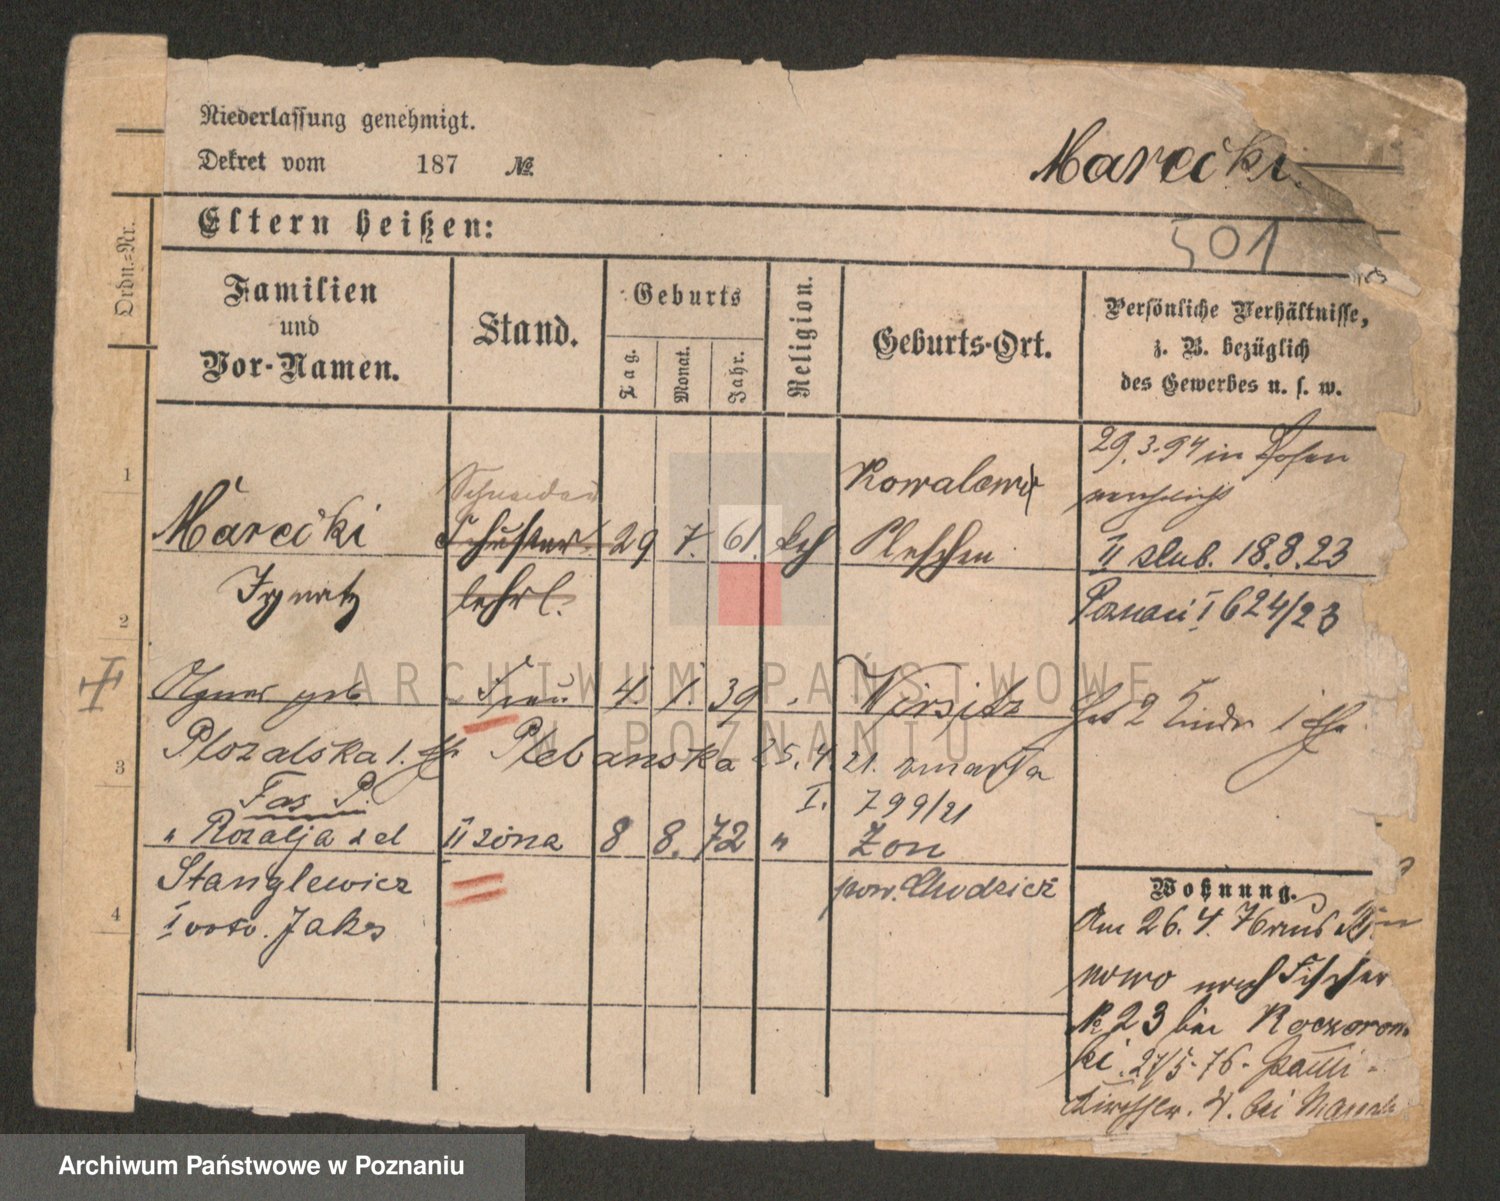 Niederlassung genehmigt.
Dekret vom 187 №
Marecki.
501
Eltern heißen:
Ordn.-Nr.
Familien
und
Vor-Namen.
Stand.
Geburts
Tag.
Monat.
Jahr.
Religion.
Geburts-Ort.
Persönliche Verhältnisse,
z. B. bezüglich
des Gewerbes u. s. w.
1
Schneider
Kowalew
29.3.94 in Posen
Marecki Schuster 29 7. 61. kth Pleschen
II slub. 18.8.23
Ignatz lehrl.
2
Poznań I 624/23
Agnes geb Frau 4. 1. 39 Wirsitz
hat 2 Kinder 1 Ehe
3
Plozalska 1. Eh Plebanska 25.4.21. zmarła
I. 799/21
Fas P.
" Rozalja z d II żona 8 8. 72 " Zon
Stanglewicz pow. Chodzież
4
I voto. Jaks
Wohnung.
Am 26.4.76 aus
nowo nach Fischer
№ 23 bei Koczorow-
ki. 27/5.76. Pauli-
kirchstr. 4. bei
ARCHIWUM PAŃSTWOWE
W POZNANIU
Archiwum Państwowe w Poznaniu